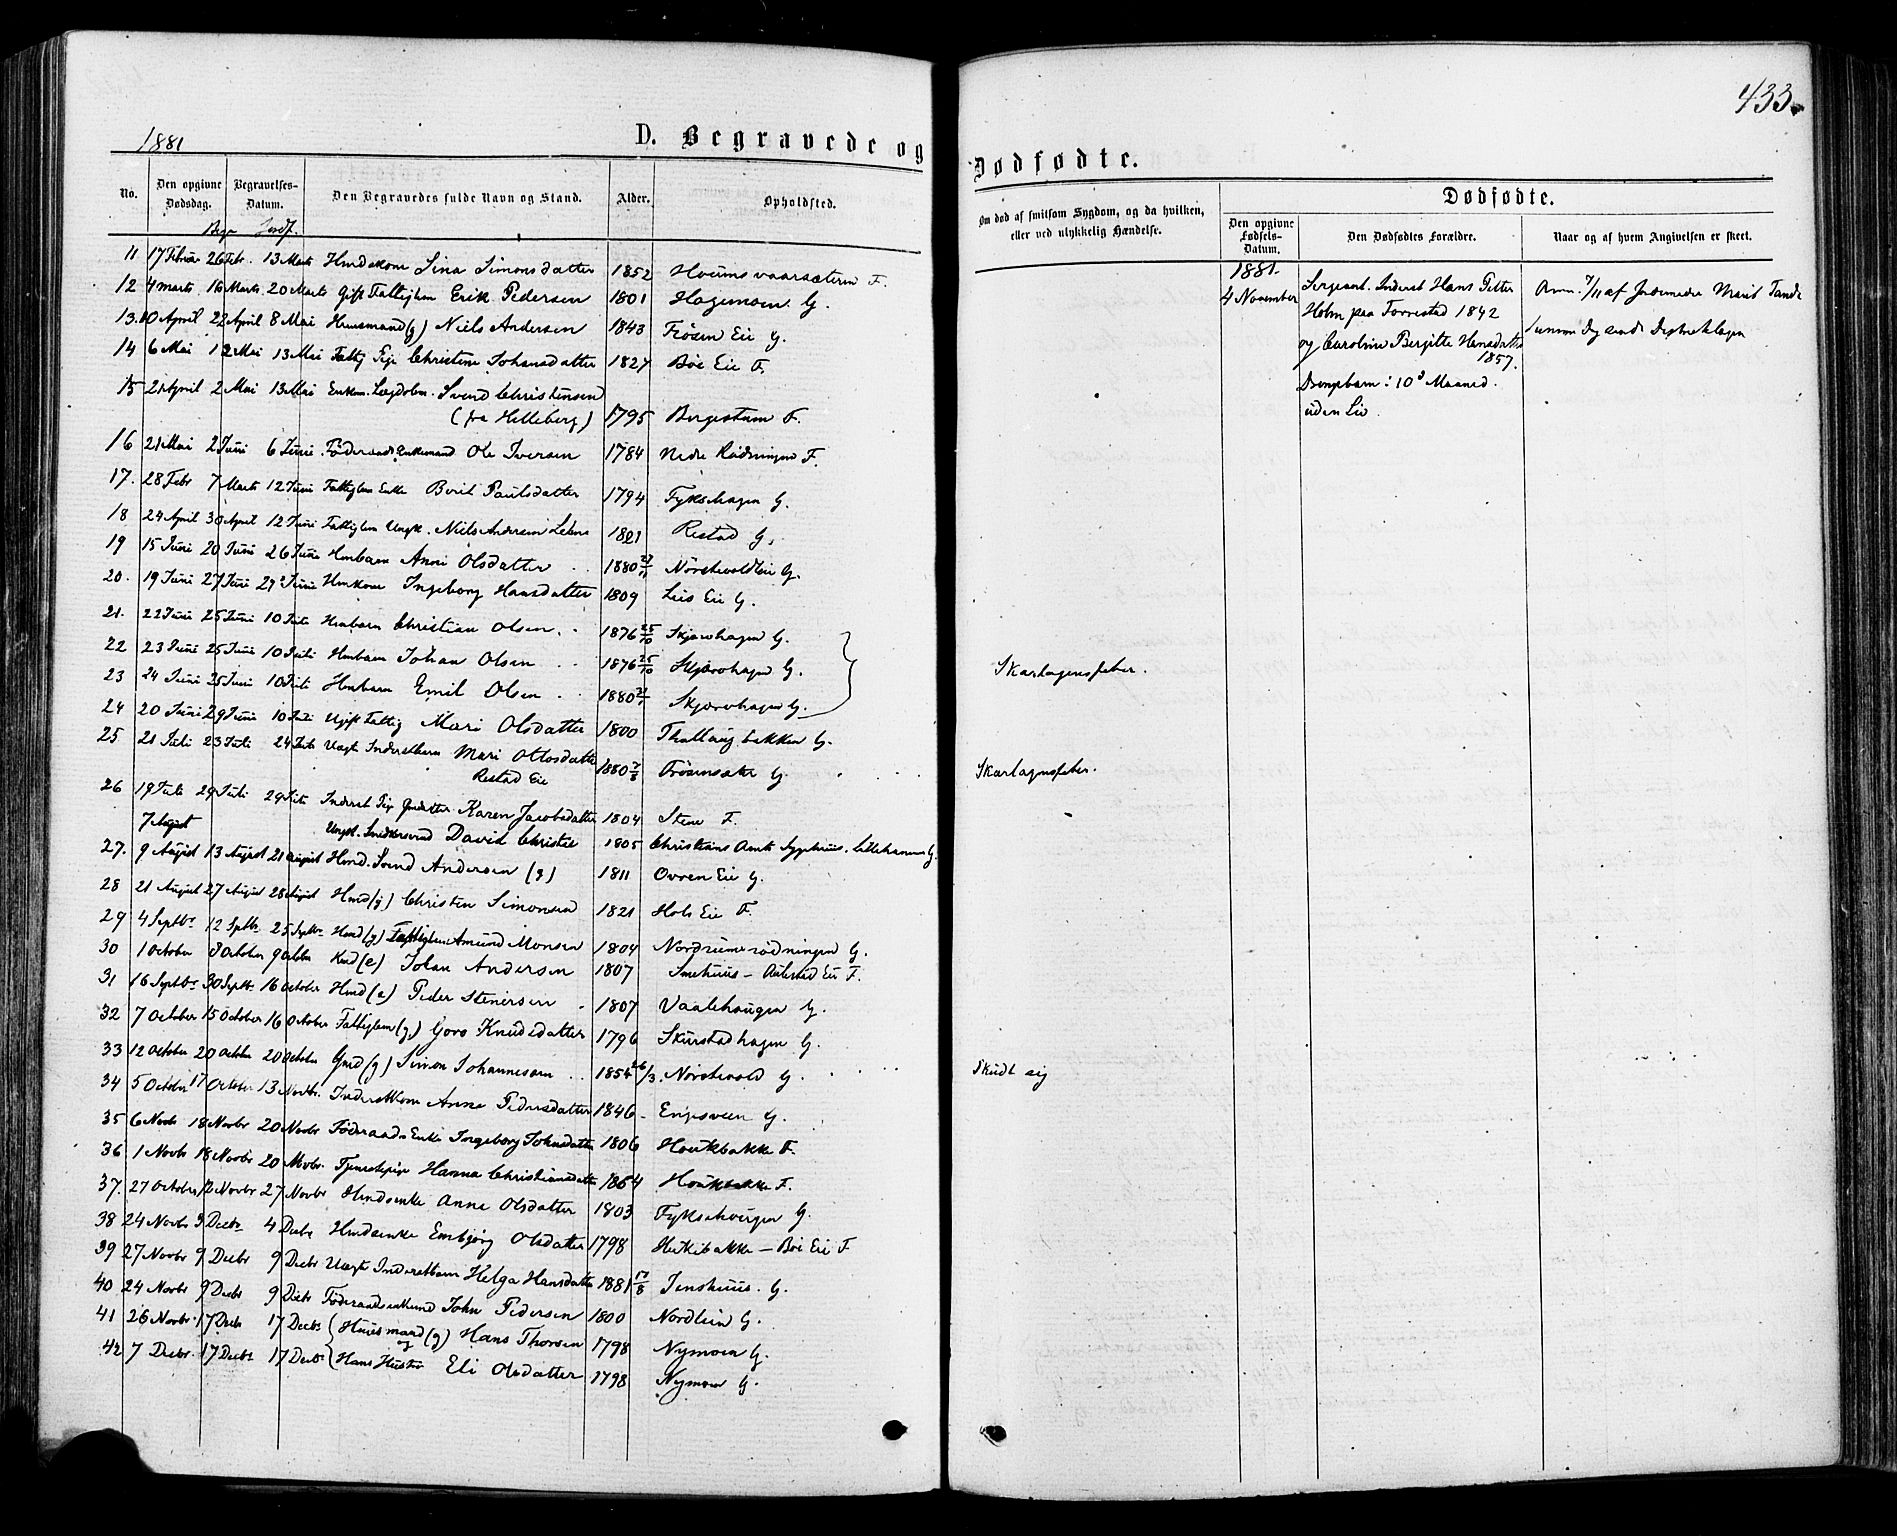 433.
1881
D. Begravede og
Dødfødte.
No.
Den opgivne Dødsdag.
Begravelses-Datum.
Den Begravedes fulde Navn og Stand.
Alder.
Opholdsted.
Om død af smitsom Sygdom, og da hvilken, eller ved ulykkelig Hændelse.
Dødfødte.
Den opgivne Fødsels-Datum.
Den Dødfødtes Forældre.
Naar og af hvem Angivelsen er skeet.
11 17 Februar 26 Febr. 13 Marts Sina Simonsdatter 1852 F.
12 4 Marts 16 Marts 20 Marts Gift Fattiglem Erik Pedersen 1801 Hagemoen G.
13. 10 April 22 April 8 Mai Huusmand (g) Niels Andersen 1843 Frøsen Eie G.
14 6 Mai 12 Mai 13 Mai Fattig Pige Christine Johansdatter 1827 Bøe Eie F.
15 21 April 2 Mai 13 Mai Enkem. Lægdslem. Svend Christensen
(fra Helleberg) 1795 Bergestuen F.
16 21 Mai 2 Juni 6 Juni Føderaads Enkemand Ole Iversen 1784 Nedre Rødningen F.
17. 28 Febr 7 Marts 12 Juni Fattiglem Enke Berit Paulsdatter 1794 Fykshagen G.
18 24 April 30 April 12 Juni Fattiglem Ungk. Niels Andersen 1821 Restad G.
19 15 Juni 20 Juni 26 Juni Hmbarn Anne Olsdatter 1880 G.
20. 19 Juni 27 Juni Juni Hmkone Ingeborg Hansdatter 1809 Liis Eie G.
21. 22 Juni 25 Juni 10 Juli Hmbarn Christian Olsen 1876 25/10 Skjørvhagen G.
22 23 Juni 25 Juni 10 Juli Hmbarn Johan Olsen 1876 25/10 Skjørvhagen G. Skarlagensfeber.
23 24 Juni 25 Juni 10 Juli Hmbarn Emil Olsen 1880 Skjørvhagen G.
24 20 Juni 29 Juni 10 Juli Ugift Fattig Mari Olsdatter 1800 G.
25 21 Juli 23 Juli 24 Juli Uægte Inderstbarn Mari Ottosdatter
Restad Eie 1880 7/8 G. Skarlagensfeber.
26 19 Juli 29 Juli 29 Juli Inderst Pige Karen Jacobsdatter 1804 Stene F.
7 August Ungk. Snedkersvend David Christie 1805 Christians Amts Sygehuus. Lillehammer G.
27. 9 August 13 August 21 August Hmd. Svend Andersen (g) 1811 Ovren Eie G.
28 21 August 27 August 28 August Hmd (g) Christen Simonsen 1821 Hols Eie F.
29 4 Septbr. 12 Septbr. 25 Septbr. Hmd (g) Fattiglem Amund Monsen 1804 Nordrumsrødningen G.
30 1 October 8 October 9 October Johan Andersen 1807 Smehuus - Aulestad Eie F.
31 16 Septbr. 30 Septbr. 16 October Hmd (e) Peder Steinersen 1807 Vaalehaugen G.
32 7 October 15 October 16 October Fattiglem (g) Goro Knudsdatter 1796 Skurstadhagen G.
33 12 October 20 October 20 October Gmd (g) Simon Johannesen 1854 26/3. Nørstevold G. Skudt sig
34 5 October 17 October 13 Novbr. Inderstkone Anne Pedersdatter 1846 Engesveen G.
35 6 Novbr 18 Novbr 20 Novbr Føderaads Enke Ingeborg Johnsdatter 1806 Houkbakke F.
36 1 Novbr 18 Novbr 20 Novbr. Tjenestepige Hanna Christiansdatter 1864 Houkbakke F.
37. 27 October 12 Novbr 27 Novbr Hmdsenke Anne Olsdatter 1803 Fykshaugen G.
38 24 Novbr 3 Decbr 4 Decbr Hmdsenke Embjørg Olsdatter 1798 - Bøe Eie F.
39 27 Novbr 9 Decbr 9 Decbr Uægte Inderstbarn Helga Hansdatter 1881 17/8 Jenshuus. G.
40 24 Novbr 9 Decbr 9 Decbr Føderaadsenkemd John Pedersen 1800 Nordlien G.
41 26 Novbr. 17 Decbr 17 Decbr Huusmand (g) Hans Thorsen 1798 Nymoen G.
og
42 7 Decbr. 17 Decbr 17 Decbr Hans Hustro Eli Olsdatter 1798 Nymoen G.
1881.
4 November
Sergeant. Inderst Hans Petter
Holm paa Forrestad 1842
og Caroline Bergitte Hansdatter
1857.
Drengebarn: 10de Maaned.
uden Liv.
Anm. 7/11 af Jordemoder Marit Tande